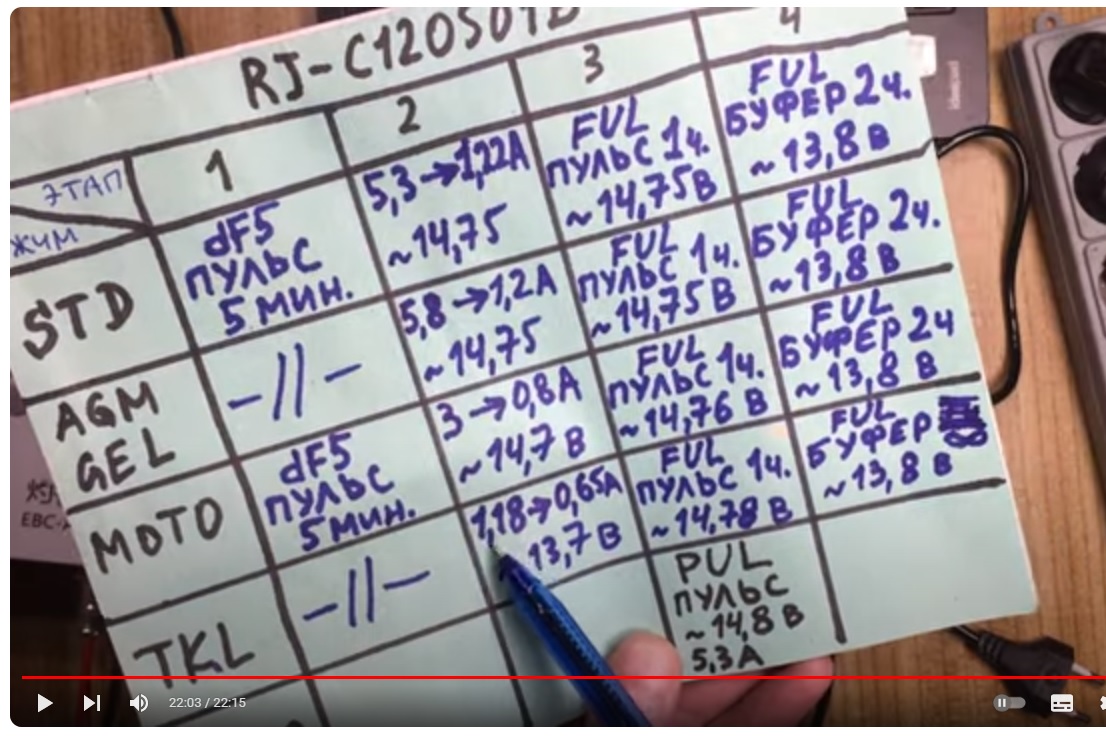 RJ-C120501D
ЭТАП
1
2
3
4
ЖИМ
STD
dF5
ПУЛЬС
5 МИН.
5,3→1,22А
~14,75
FUL
ПУЛЬС 1ч.
~14,75В
FUL
БУФЕР 2ч.
~13,8 В
AGM
GEL
-//-
5,8→1,2А
~14,75
FUL
ПУЛЬС 1ч.
~14,75 В
FUL
БУФЕР 2ч.
~13,8 В
MOTO
dF5
ПУЛЬС
5 МИН.
3→0,8А
~14,7 В
FUL
ПУЛЬС 1ч.
~14,76 В
FUL
БУФЕР 2ч
~13,8 В
TKL
-//-
1,18→0,65А
13,7 В
FUL
ПУЛЬС 1ч.
~14,78 В
FUL
БУФЕР
~13,8 В
PUL
ПУЛЬС
~14,8 В
5,3 А
22:03 / 22:15